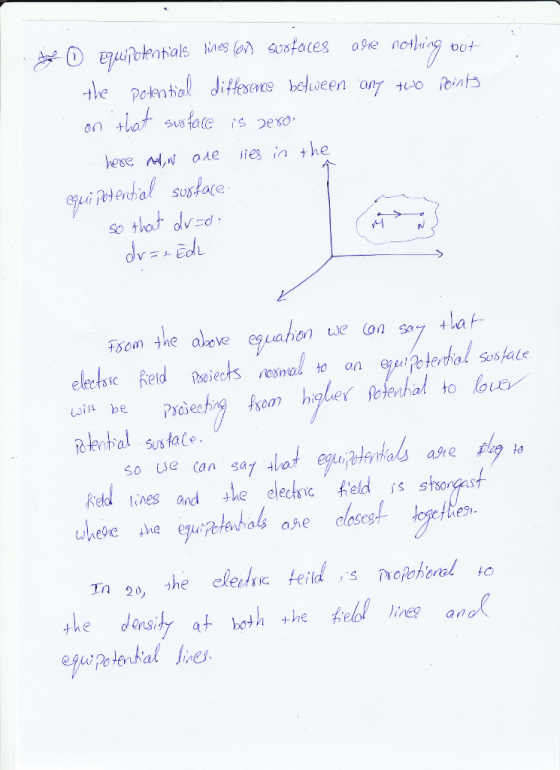 Ans ① Equipotentials lines (or) surfaces are nothing but
the potential difference between any two points
on that surface is zero.
here M,N are lies in the
equipotential surface.
so that dv=0.
dv = - Ēdl
M N
From the above equation we can say that
electric field projects normal to an equipotential surface
will be projecting from higher potential to lower
potential surface.
so we can say that equipotentials are to
field lines and the electric field is strongest
where the equipotentials are closest together.
In 2D, the electric feild is propotional to
the density at both the field lines and
equipotential lines.